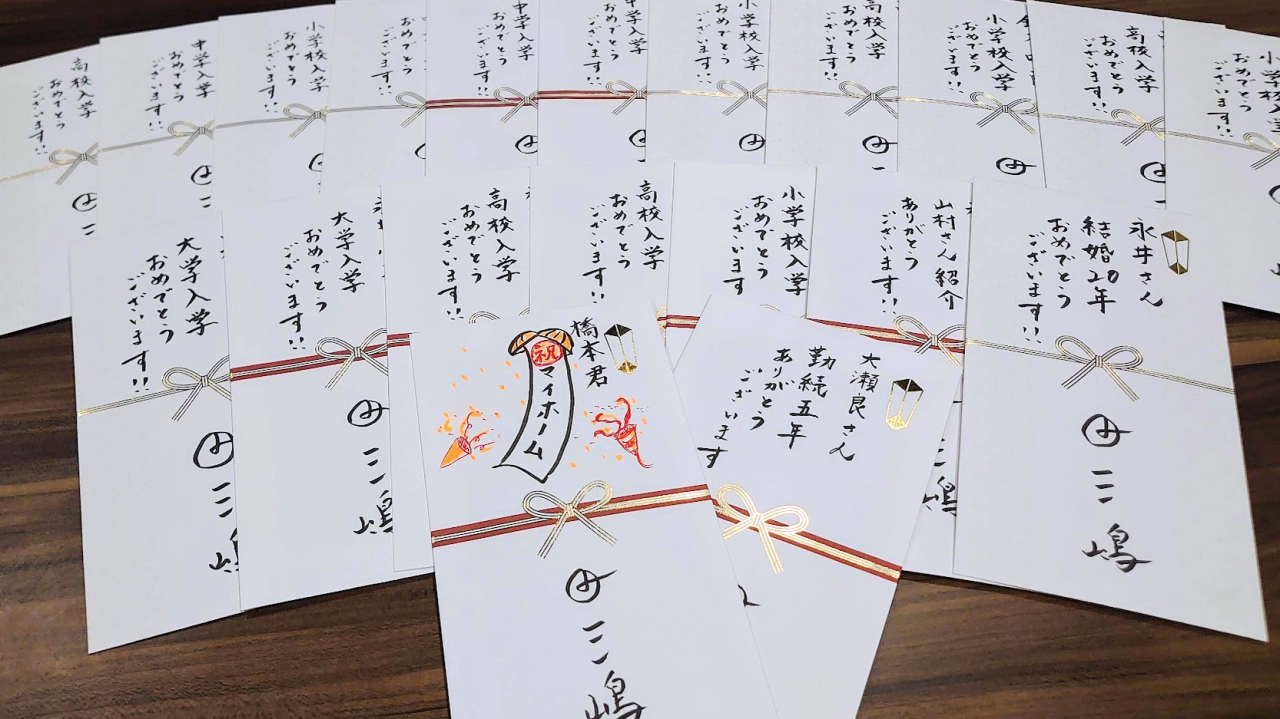 高校入学
おめでとう
ございます!!
中学入学
おめでとう
ございます!!
小学校入学
おめでとう
ございます!!
おめでとう
ございます!!
中学入学
おめでとう
ございます!!
中学入学
おめでとう
ございます!!
小学校入学
おめでとう
ございます!!
高校入学
おめでとう
ございます!!
三
小学校入学
おめでとう
ございます!!
高校入学
おめでとう
ございます!!
小学校入学
おめでとう
ございます!!
大学入学
おめでとう
ございます!!
三嶋
大学入学
おめでとう
ございます!!
三嶋
高校入学
おめでとう
ございます!!
高校入学
おめでとう
ございます!!
小学校入学
おめでとう
ございます
山村さん紹介
ありがとう
ございます!!
三嶋
永井さん
結婚20年
おめでとう
ございます!!
三嶋
橋本君
祝
マイホーム
三嶋
大瀬良さん
勤続五年
ありがとう
ございます